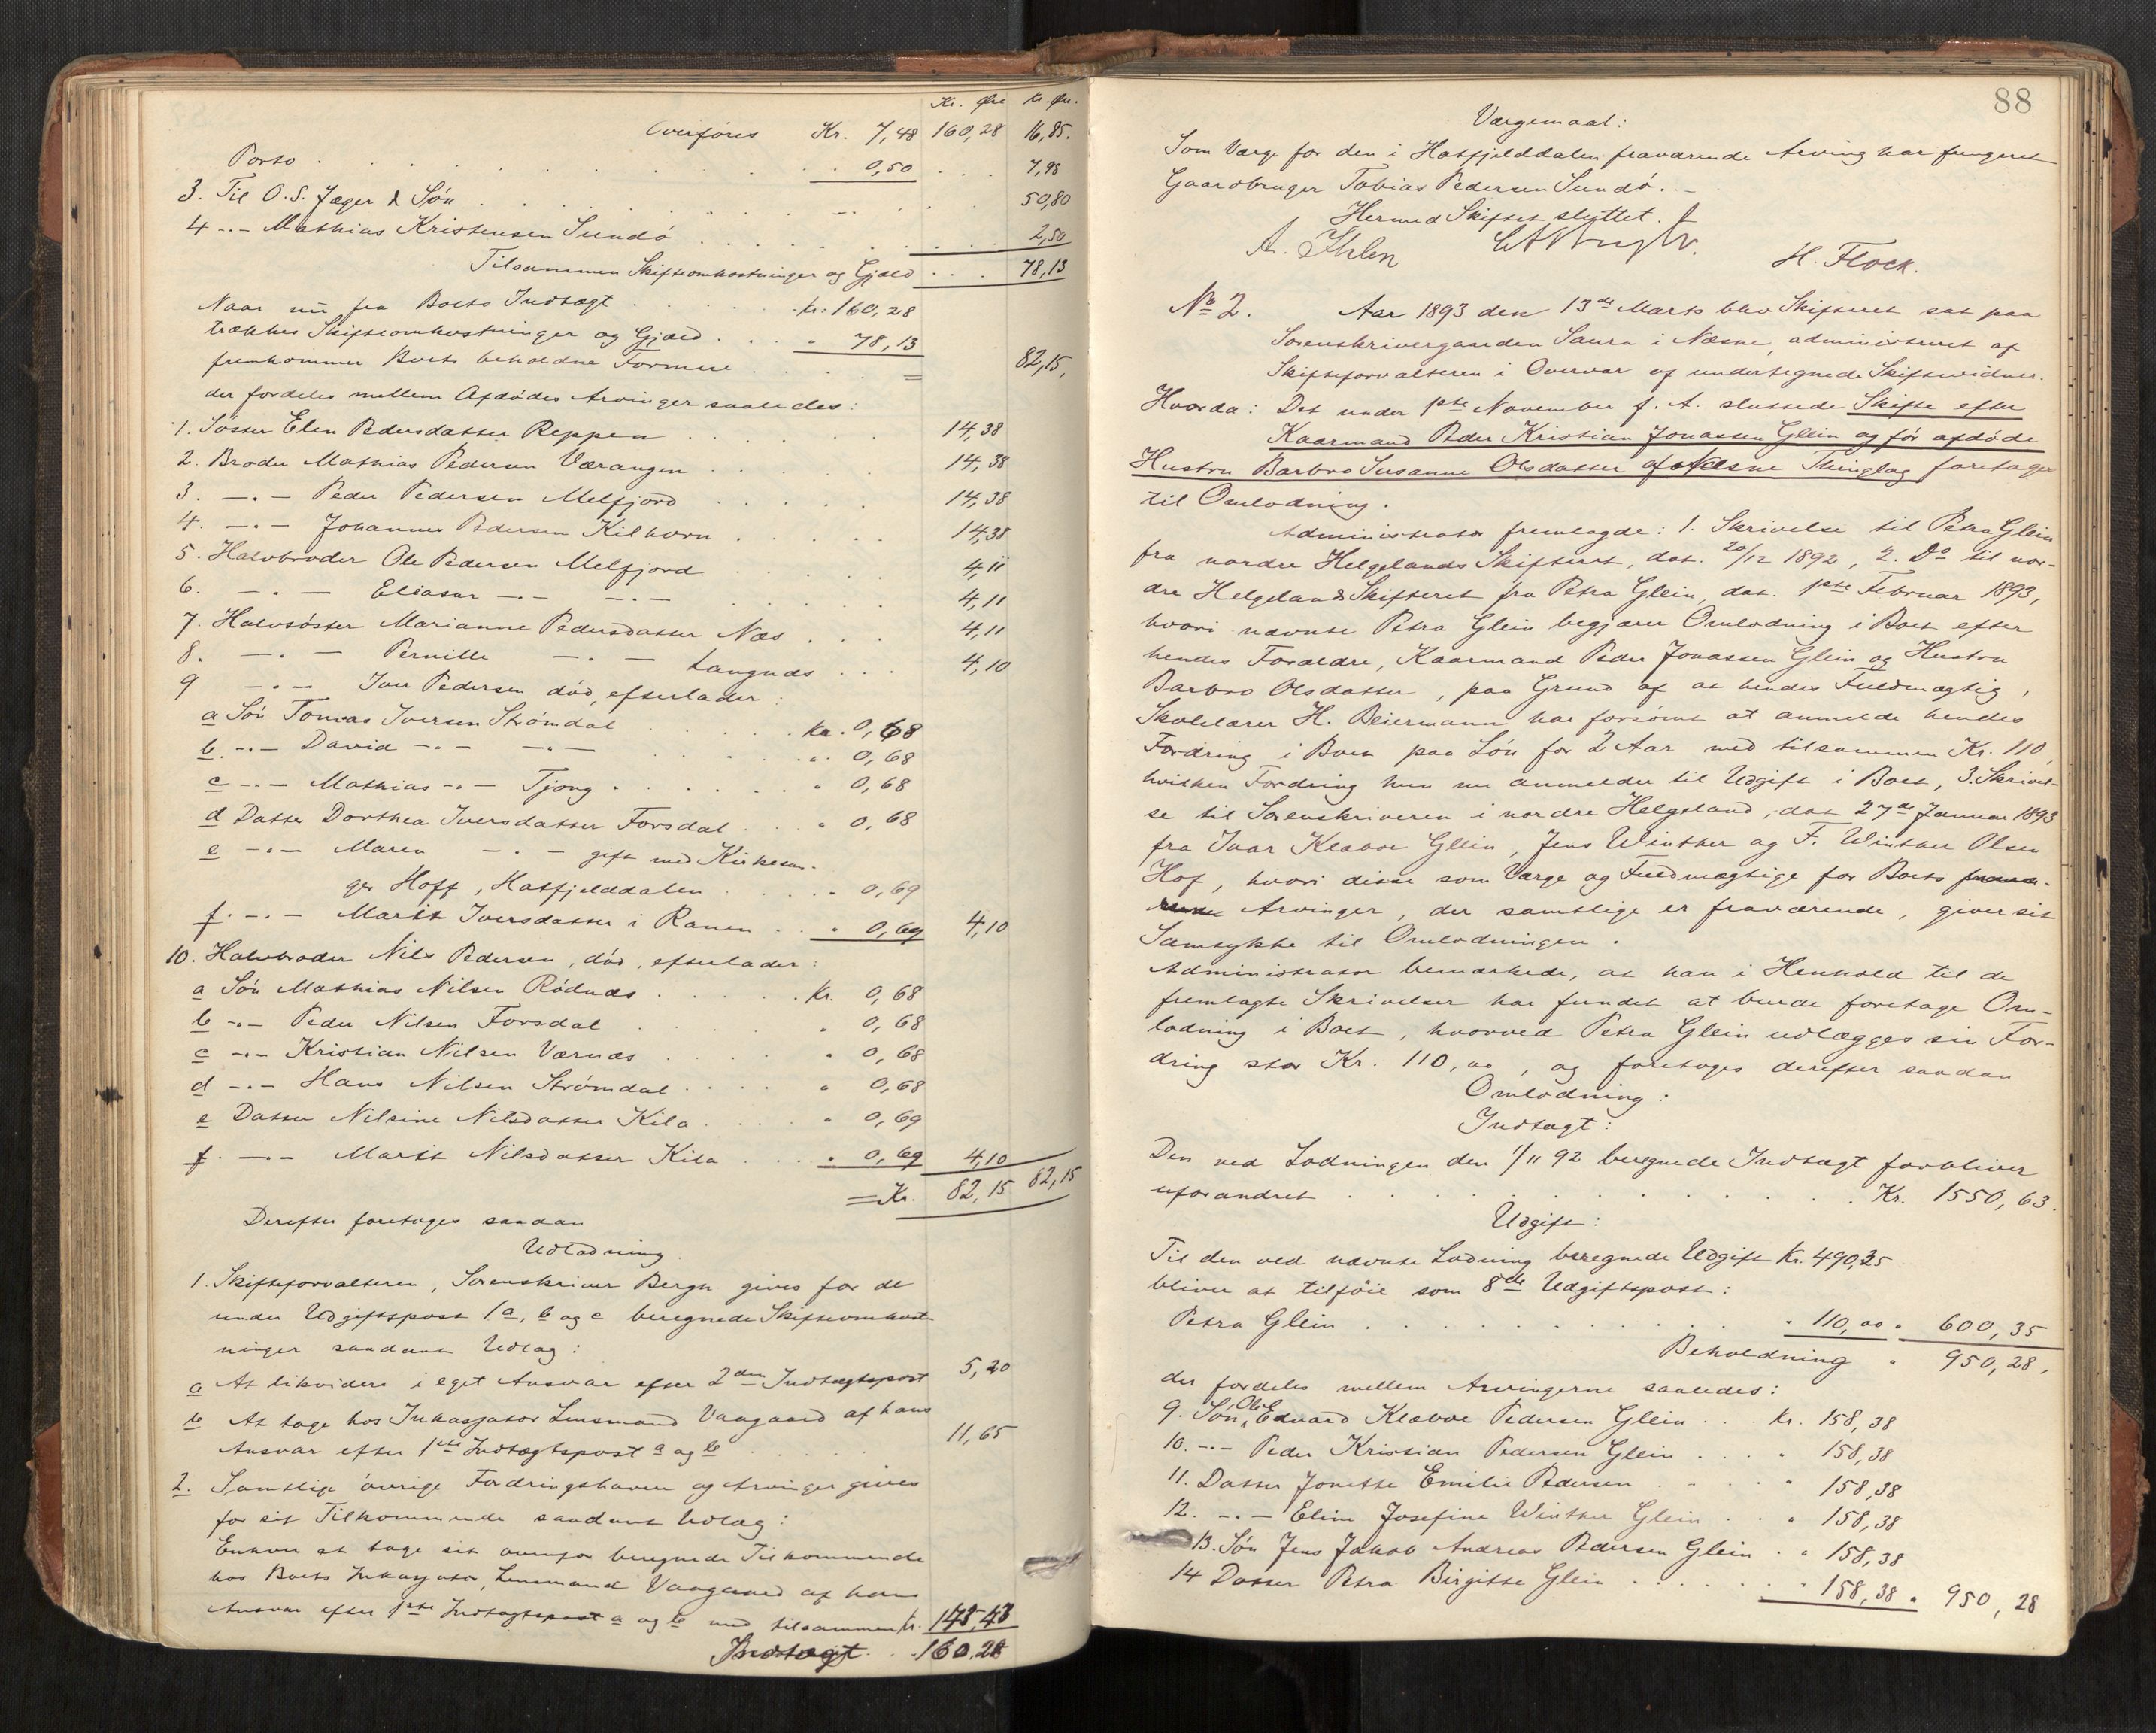 Kr. Øre Kr. Øre.
Overføres Kr. 7,48 160,28 16,85.
Porto . . . 0,50 . . . 7,98
3. Til O. S. Jæger & Søn . . . 50,80
4 -"- Mathias Kristensen Sundø . . . 2,50
Tilsammen Skifteomkostninger og Gjæld . . . 78,13
Naar nu fra Boets Indtægt . . . Kr. 160,28
trækkes Skifteomkostninger og Gjæld . . . " 78,13
fremkommer Boets beholdne Formue . . . = 82,15,
der fordeles mellem Afdødes Arvinger saaledes:
1. Søster Elen Pedersdatter Reppen . . . 14,38
2. Broder Mathias Pedersen Værangen . . . 14,38
3. -"- Peder Pedersen Melfjord . . . 14,38
4. -"- Johannes Pedersen Kilhorn . . . 14,38
5. Halvbroder Ole Pedersen Melfjord . . . 4,11
6. -"- Eliasar -"- -"- . . . 4,11
7. Halvsøster Marianne Pedersdatter Næs . . . 4,11
8. -"- Pernille -"- Langnæs . . . 4,10
9 -"- Iver Pedersen død, efterlader:
a Søn Tomas Iversen Strømdal . . . Kr. 0,68
b. -"- David -"- -"- . . . " 0,68
c -"- Mathias -"- Tjong . . . " 0,68
d Datter Dorthea Iversdatter Forsdal . . . " 0,68
e -"- Maren -"- gift med Kirkesan-
ger Hoff, Hatfjelddalen . . . " 0,69
f. -"- Marit Iversdatter i Ranen . . . " 0,69 4,10
10. Halvbroder Nils Pedersen, død, efterlader:
a Søn Mathias Nilsen Rødnæs . . . Kr. 0,68
b -"- Peder Nilsen Forsdal . . . " 0,68
c -"- Kristian Nilsen Værnæs . . . " 0,68
d -"- Hans Nilsen Strømdal . . . " 0,68
e Datter Nilsine Nilsdatter Kila . . . " 0,69
f. -"- Marit Nilsdatter Kila . . . " 0,69 4,10
= Kr. 82,15 82,15
Derefter foretages saadan
Udlodning.
1. Skifteforvalteren, Sorenskriver Bergh gives for de
under Udgiftspost 1 a, b og c beregnede Skifteomkost-
ninger saadant Udlæg:
a At likvidere i eget Ansvar efter 2den Indtægtspost 5,20
b At tage hos Inkassator Lensmand Vaagaard af hans
Ansvar efter 1ste Indtægtspost a og b . . . 11,65
2. Samtlige øvrige Fordringshavere og Arvinger gives
for sit Tilkommende saadant Udlæg:
Enhver at tage sit ovenfor beregnede Tilkommende
hos Boets Inkassator, Lensmand Vaagaard af hans
Ansvar efter 1ste Indtægtspost a og b med tilsammen Kr. 143,43
Indtægt . . 160,28
88
Værgemaal:
Som Værge for den i Hatfjelddalen fraværende Arving har fungeret
Gaardbruger Tobias Pedersen Sundø. -
Hermed Skiftet sluttet.
A. Ihlen H. Flock.
No 2. Aar 1893 den 13de Marts blev Skifteret sat paa
Sorenskrivergaarden Saura i Næsne, administreret af
Skifteforvalteren i Overvær af undertegnede Skiftevidner.
Hvorda: Det under 1ste November f. A. sluttede Skifte efter
Kaarmand Peder Kristian Jonassen Glein og før afdøde
Hustru Barbro Susanne Olsdatter af Næsne Thinglag foretages
til Omlodning.
Administrator fremlagde: 1. Skrivelse til Petra Glein
fra nordre Helgelands Skifteret, dat. 20/12 1892, 2. Do til nor-
dre Helgelands Skifteret fra Petra Glein, dat. 1ste Februar 1893,
hvori nævnte Petra Glein begjærer Omlodning i Boet efter
hendes Forældre, Kaarmand Peder Jonassen Glein og Hustru
Barbro Olsdatter, paa Grund af at hendes Fuldmægtig,
Skolelærer H. Beiermann har forsømt at anmelde hendes
Fordring i Boet paa Løn for 2 Aar med tilsammen Kr. 110,
hvilken Fordring hun nu anmelder til Udgift i Boet, 3. Skrivel-
se til Sorenskriveren i nordre Helgeland, dat 27de Januar 1893
fra Ivar Klæboe Glein, Jens Winther og F. Winther Olsen
Hof, hvori disse som Værge og Fuldmægtige for Boets fravæ-
rende Arvinger, der samtlige er fraværende, giver sit
Samtykke til Omlodningen.
Administrator bemærkede, at han i Henhold til de
fremlagte Skrivelser har fundet at burde foretage Om-
lodning i Boet, hvorved Petra Glein udlægges sin For-
dring stor Kr. 110,00, og foretages derefter saadan
Omlodning:
Indtægt:
Den ved Lodningen den 1/11 92 beregnede Indtægt forbliver
uforandret . . . Kr. 1550,63.
Udgift:
Til den ved nævnte Lodning beregnede Udgift Kr. 490,35
bliver at tilføie som 8de Udgiftspost:
Petra Glein . . . " 110,00 " 600,35
Beholdning " 950,28,
der fordeles mellem Arvingerne saaledes:
9. Søn Ole Edvard Klæboe Pedersen Glein . . . Kr. 158,38
10. -"- Peder Kristian Pedersen Glein . . . " 158,38
11. Datter Jonette Emilie Pedersen . . . " 158,38
12. -"- Eline Josefine Winther Glein . . . " 158,38
13. Søn Jens Jakob Andreas Pedersen Glein . . " 158,38
14 Datter Petra Birgitte Glein . . . " 158,38 " 950,28